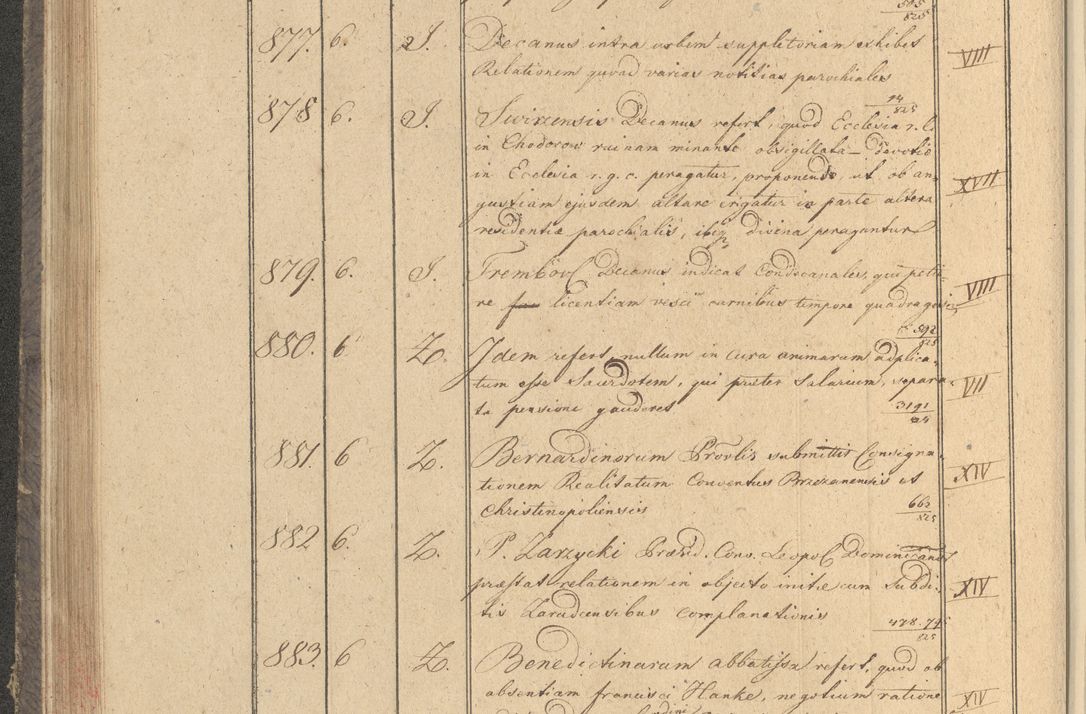 595/825
877. 6. J. Decanus intra urbem suppletoriam exhibet VIII
Relationem quoad varias notitias parochiales
14/825
878 6. J. Swirzensis Decanus refert, quod Ecclesia r. l.
in Chodorow ruinam minante obsigillata devotio
in Ecclesia r. g. c. peragatur, proponendo, ut ob an= XVII
gustiam ejusdem altare erigatur in parte altera
residentiæ parochialis, ibiq divina peragantur
879. 6. J. Trembovl Decanus indicat Condecanales, qui petie
re licentiam vesci carnibus tempore quadragesim VIII
592/825
880. 6 Z. Idem refert, nullum in cura animarum adplica=
tum esse Sacerdotem, qui præter Salarium, separa= VII
ta pensione gauderet 3191/824
881. 6 Z. Bernardinorum Provlis submittit Consigna=
tionem Realitatum Conventus Brzezanensis et XIV
Christinopoliensis 663/825
882 6. Z. P. Zarzycki Præsid. Conv. Leopol Dominicanor
præstat relationem in objecto initæ cum Subdi= XIV
tis Zarudcensibus complanationis 478.79/825
883. 6 Z. Benedictinarum abbatissa refert, quod ob
absentiam francisci Hanke, negotium ratione XIV